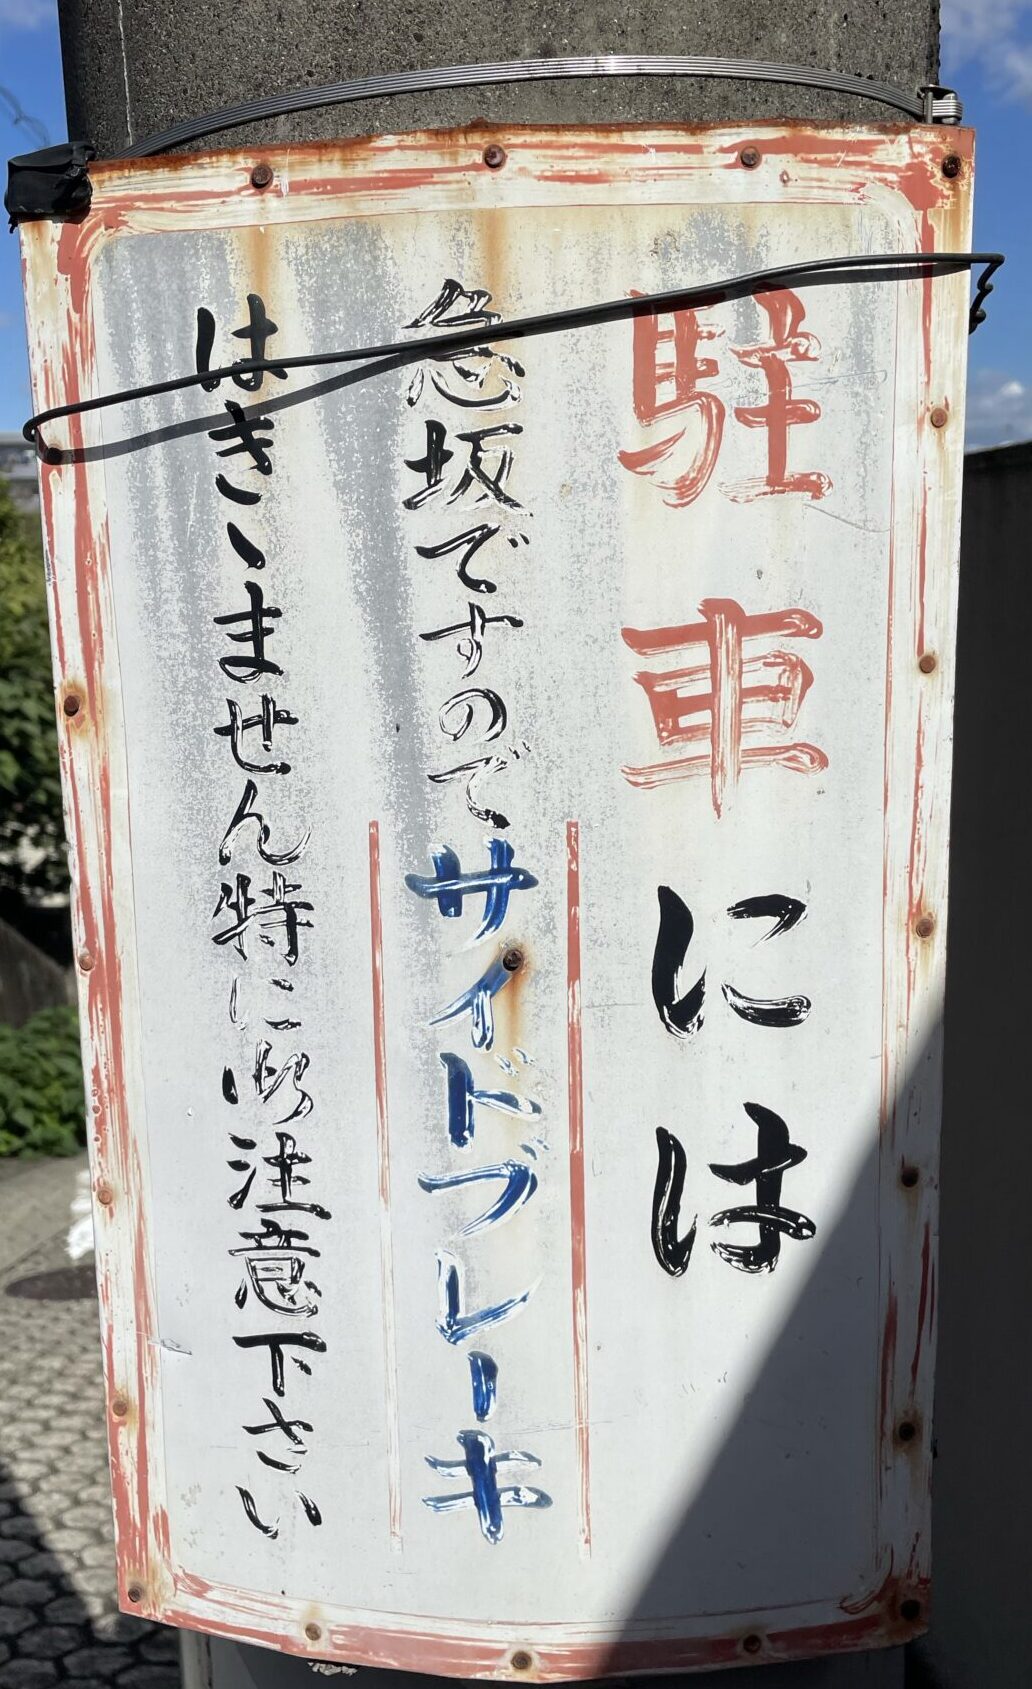 駐車には
急坂ですのでサイドブレーキ
はきゝません特に御注意下さい